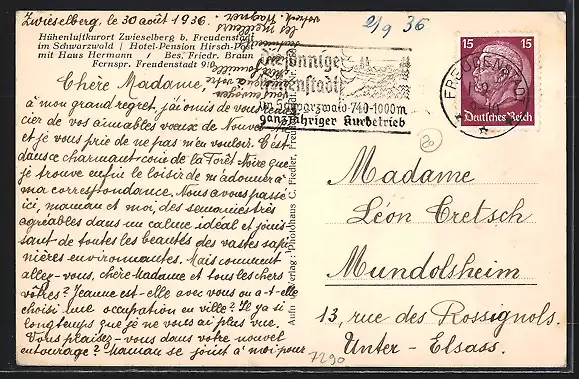 Zwieselberg, le 30 août 1936.
Höhenluftkurort Zwieselberg b. Freudenstadt
im Schwarzwald / Hotel-Pension Hirsch-Post
mit Haus Hermann / Bes. Friedr. Braun
Fernspr. Freudenstadt 9
Chère Madame,
à mon grand regret, j'ai omis de vous remer-
cier de vos aimables vœux de Nouvel
et je vous prie de ne pas m'en vouloir. C'est
dans ce charmant coin de la Forêt Noire que
je trouve enfin le loisir de m'adonner à
ma correspondance. Nous avons passé
ici, maman et moi, des semaines très
agréables dans un calme idéal et jouis-
sant de toutes les beautés des vastes sapi-
nières environnantes. Mais comment
allez-vous, chère Madame et tous les chers
vôtres? Jeanne est-elle avec vous ou a-t-elle
choisi une occupation en ville? Il y a si
longtemps que je ne vous ai plus vue.
Vous plaisez-vous dans votre nouvel
entourage? Maman se joint à moi pour
les meilleurs
Wagner
2/9 36
Sonnige
Freudenstadt
im Schwarzwald 740-1000m
ganzjähriger Kurbetrieb
FREUDENSTADT
15 15
Deutsches Reich
20
Aufn. u. Verlag: Photohaus C. Fiedler, Freudenstadt
Madame
Léon Cretsch
Mundolsheim
13, rue des Rossignols.
Unter-Elsass.
7290